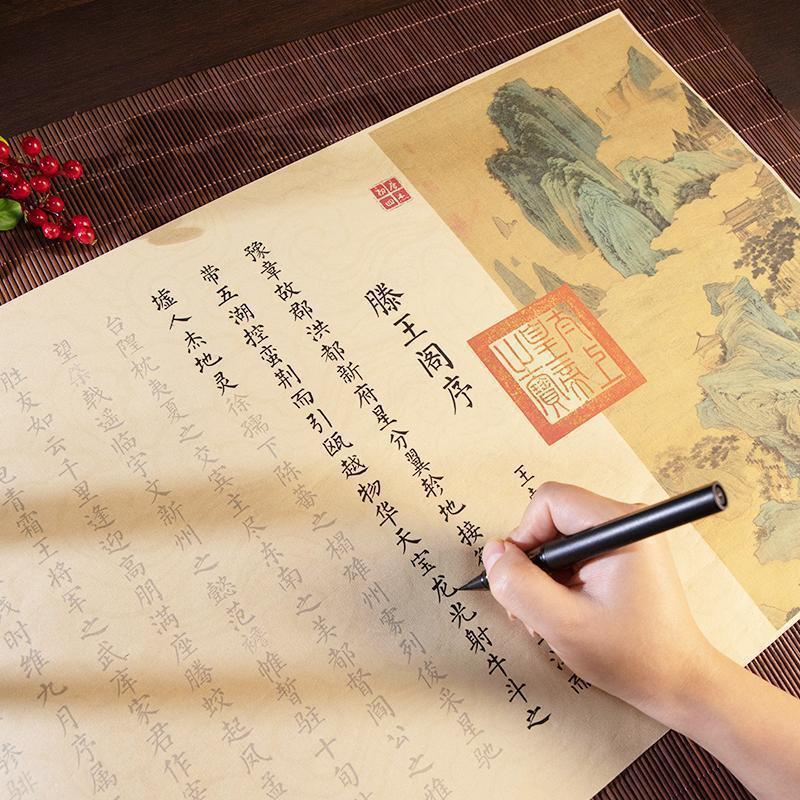 太上
皇帝
之寶
滕王阁序
王
豫章故郡洪都新府星分翼轸地接
江而
带五湖控蛮荆而引瓯越物华天宝龙光射牛斗之
墟人杰地灵徐孺下陈蕃之榻雄州雾列俊采星驰
台隍枕夷夏之交宾主尽东南之美都督阎公之雅
望棨戟遥临宇文新州之懿范襜帷暂驻十旬
胜友如云千里逢迎高朋满座腾蛟起凤孟
青霜王将军之武库家君作宰
时维九月序属
骖騑